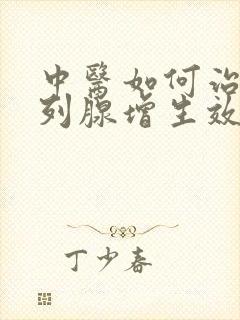 中醫如何治
列腺增生效
丁少春